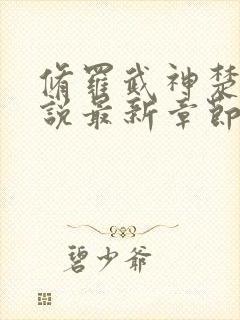 脩羅武神楚
說最新章節
碧少爺